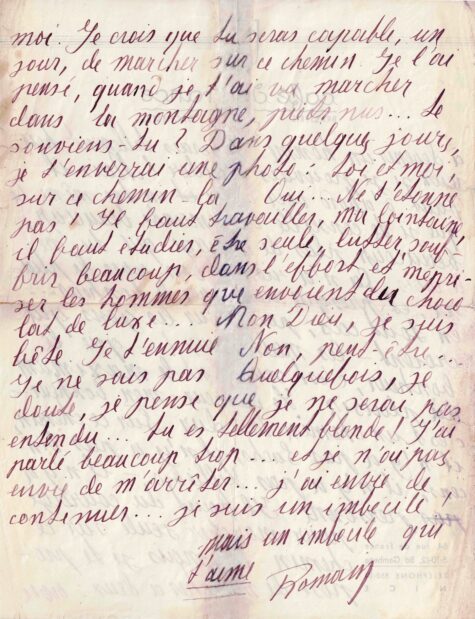 moi. Je crois que tu seras capable, un
jour, de marcher sur ce chemin. Je l'ai
pensé, quand je t'ai vu marcher
dans la montagne, pieds nus... te
souviens-tu ? Dans quelques jours,
je t'enverrai une photo : toi et moi,
sur ce chemin-là. Oui... Ne t'étonne
pas ! Il faut travailler, ma lointaine,
il faut étudier, être seule, lutter souf-
frir beaucoup, dans l'effort et mépri-
ser les hommes que envoient du choco
lat de luxe... Mon Dieu, je suis
bête. Je t'ennuie Non, peut-être...
Je ne sais pas Quelquefois, je
doute, je pense que je ne serai pas
entendu... tu es tellement blonde ! J'ai
parlé beaucoup trop... et je n'ai pas
envie de m'arrêter... j'ai envie de
continuer... je suis un imbécile
mais un imbécile qui
t'aime
Romain